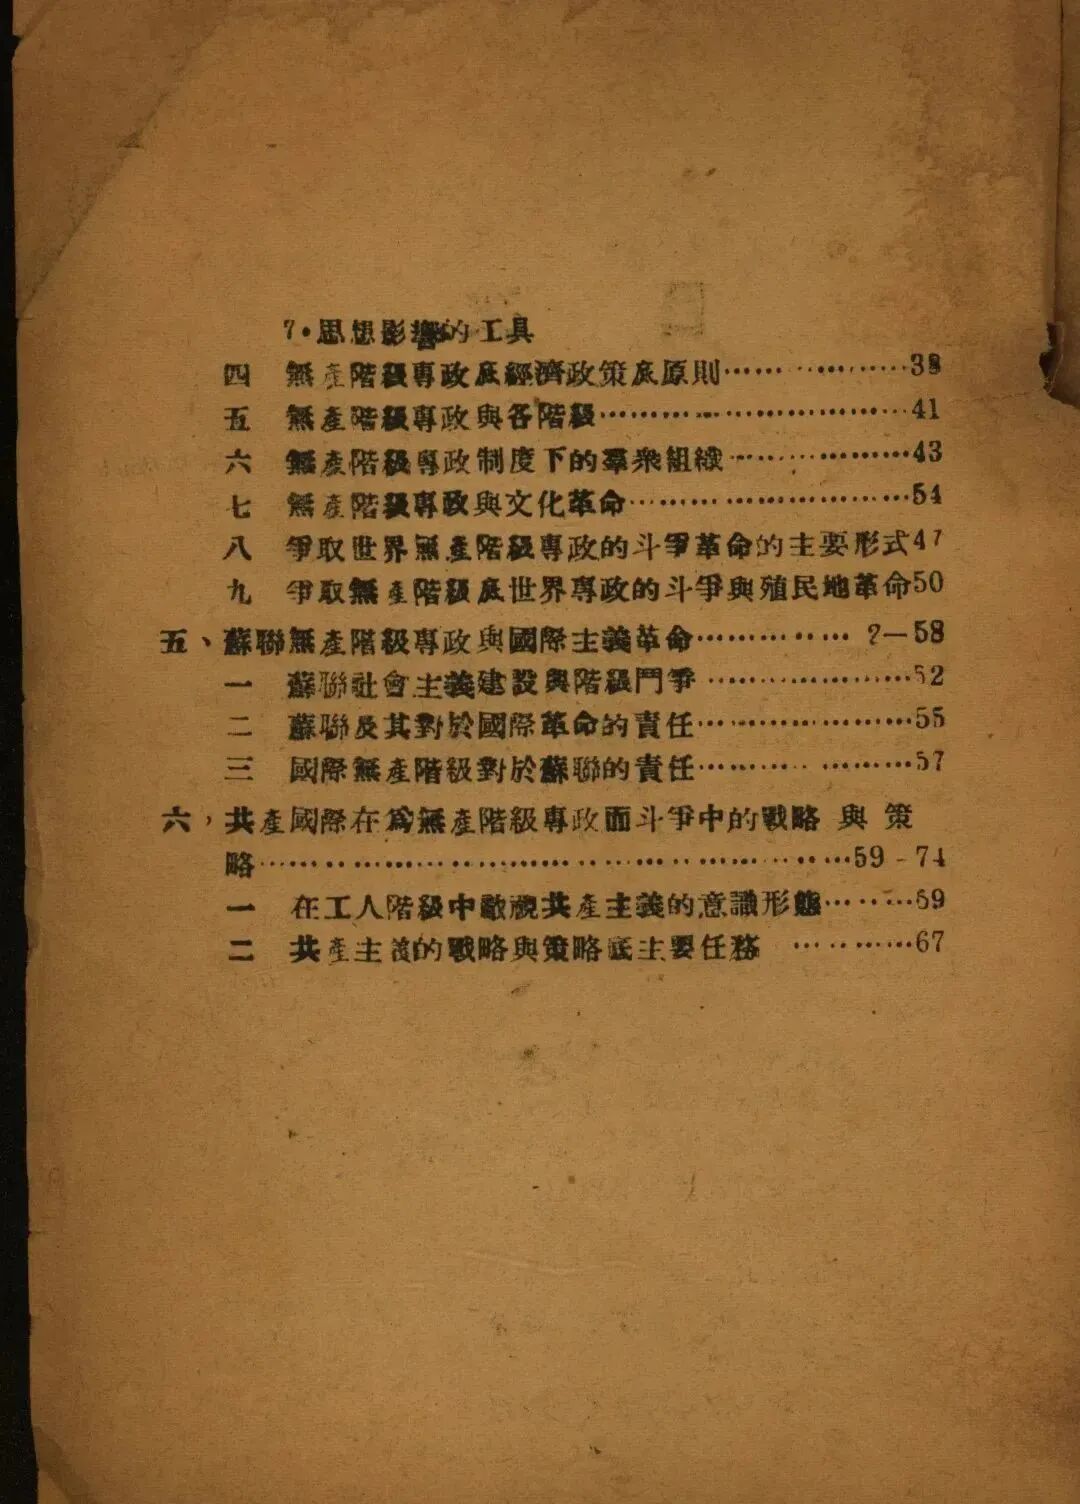 7·思想影響的工具
四 無產階級專政底經濟政策底原則………………38
五 無產階級專政與各階級………………………41
六 無產階級專政制度下的羣衆組織………………43
七 無產階級專政與文化革命………………………54
八 爭取世界無產階級專政的斗爭革命的主要形式47
九 爭取無產階級底世界專政的斗爭與殖民地革命50
五、蘇聯無產階級專政與國際主義革命…………… ?—58
一 蘇聯社會主義建設與階級鬥爭…………………52
二 蘇聯及其對於國際革命的責任…………………55
三 國際無產階級對於蘇聯的責任…………………57
六，共產國際在爲無產階級專政而斗爭中的戰略與策
略………………………………………………59-74
一 在工人階級中敵視共產主義的意識形態………59
二 共產主義的戰略與策略底主要任務 …………67